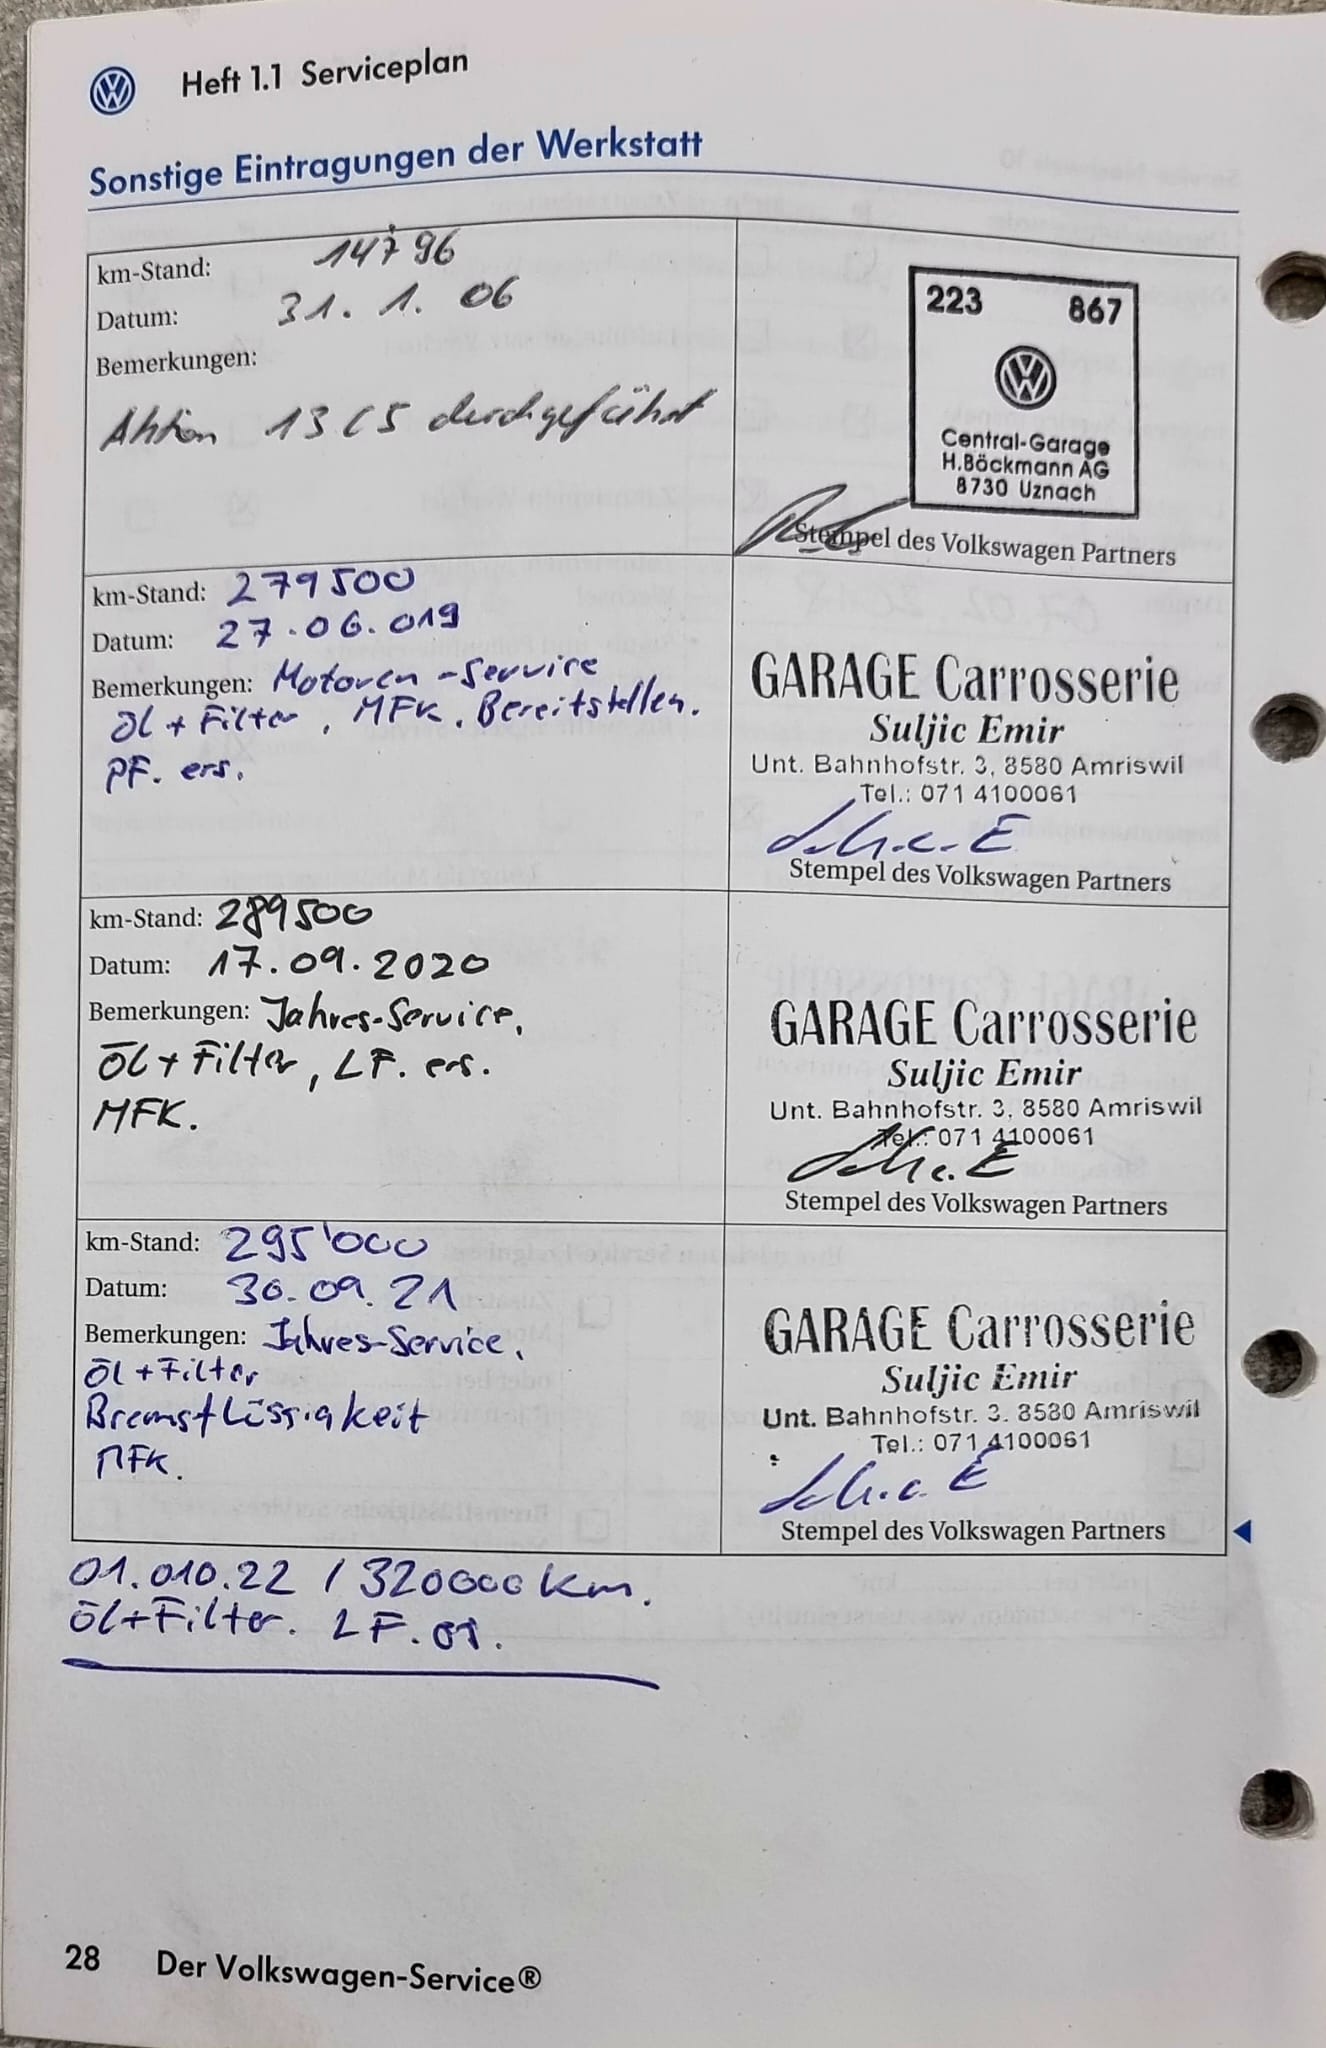 Heft 1.1 Serviceplan
Sonstige Eintragungen der Werkstatt
km-Stand: 14796
Datum: 31. 1. 06
Bemerkungen:
Aktion 13C5 durchgeführt
223 867
Central-Garage
H.Böckmann AG
8730 Uznach
Stempel des Volkswagen Partners
km-Stand: 279500
Datum: 27.06.019
Bemerkungen: Motoren-Service
Öl + Filter, MFK. Bereitstellen.
PF. ers.
GARAGE Carrosserie
Suljic Emir
Unt. Bahnhofstr. 3, 8580 Amriswil
Tel.: 071 4100061
Stempel des Volkswagen Partners
km-Stand: 289500
Datum: 17.09.2020
Bemerkungen: Jahres-Service,
Öl + Filter, LF. ers.
MFK.
GARAGE Carrosserie
Suljic Emir
Unt. Bahnhofstr. 3, 8580 Amriswil
Tel.: 071 4100061
Stempel des Volkswagen Partners
km-Stand: 295'000
Datum: 30.09.21
Bemerkungen: Jahres-Service,
Öl + Filter
Bremsflüssigkeit
MFK.
GARAGE Carrosserie
Suljic Emir
Unt. Bahnhofstr. 3, 8580 Amriswil
Tel.: 071 4100061
Stempel des Volkswagen Partners
01.010.22 / 320000 km.
Öl+Filter. LF.
28 Der Volkswagen-Service®